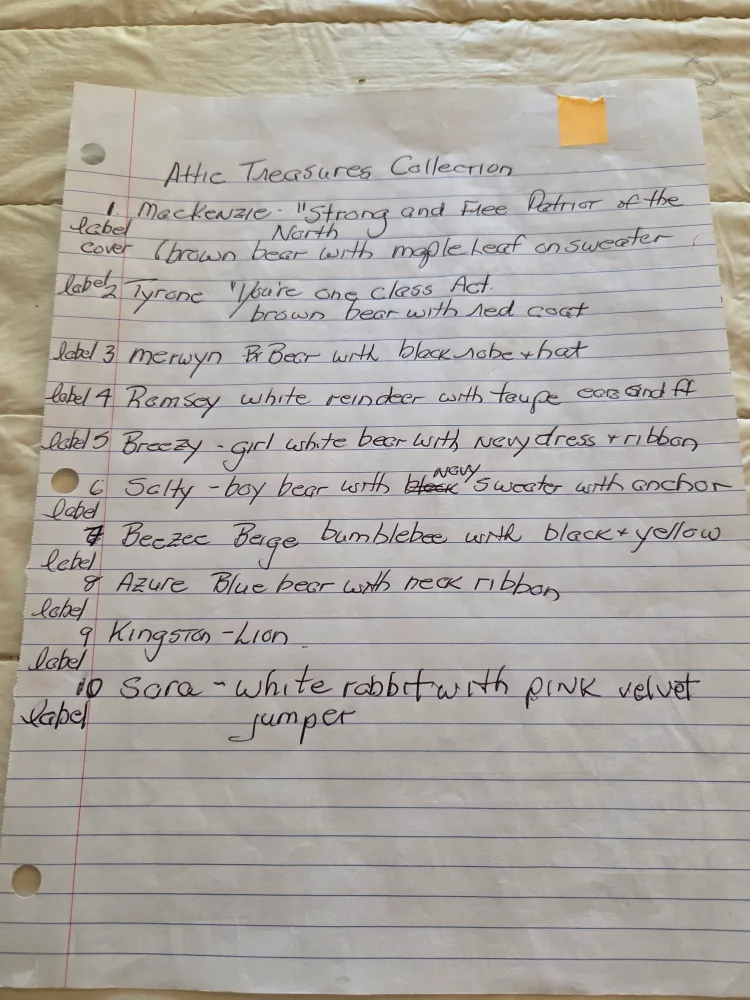 Attic Treasures Collection
1. Mackenzie - "Strong and Free Patriot of the
label North
cover (brown bear with maple leaf on sweater
label 2 Tyrone "You're one class Act.
brown bear with red coat
label 3 merwyn Bear with black robe + hat
label 4 Ramsey white reindeer with taupe ears and ft
label 5 Breezy - girl white bear with Navy dress + ribbon
navy
6 Salty - boy bear with black sweater with anchor
label
7 Beezee Beige bumblebee with black + yellow
label
8 Azure Blue bear with neck ribbon
label
9 Kingston - Lion
label
10 Sara - white rabbit with pink velvet
label jumper